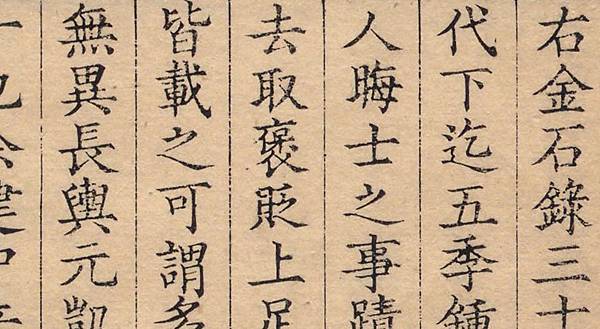 右金石錄三十
代下迄五季鍾
人晦士之事蹟
去取褒貶上足
皆載之可謂多
無異長輿元凱
一也余建中